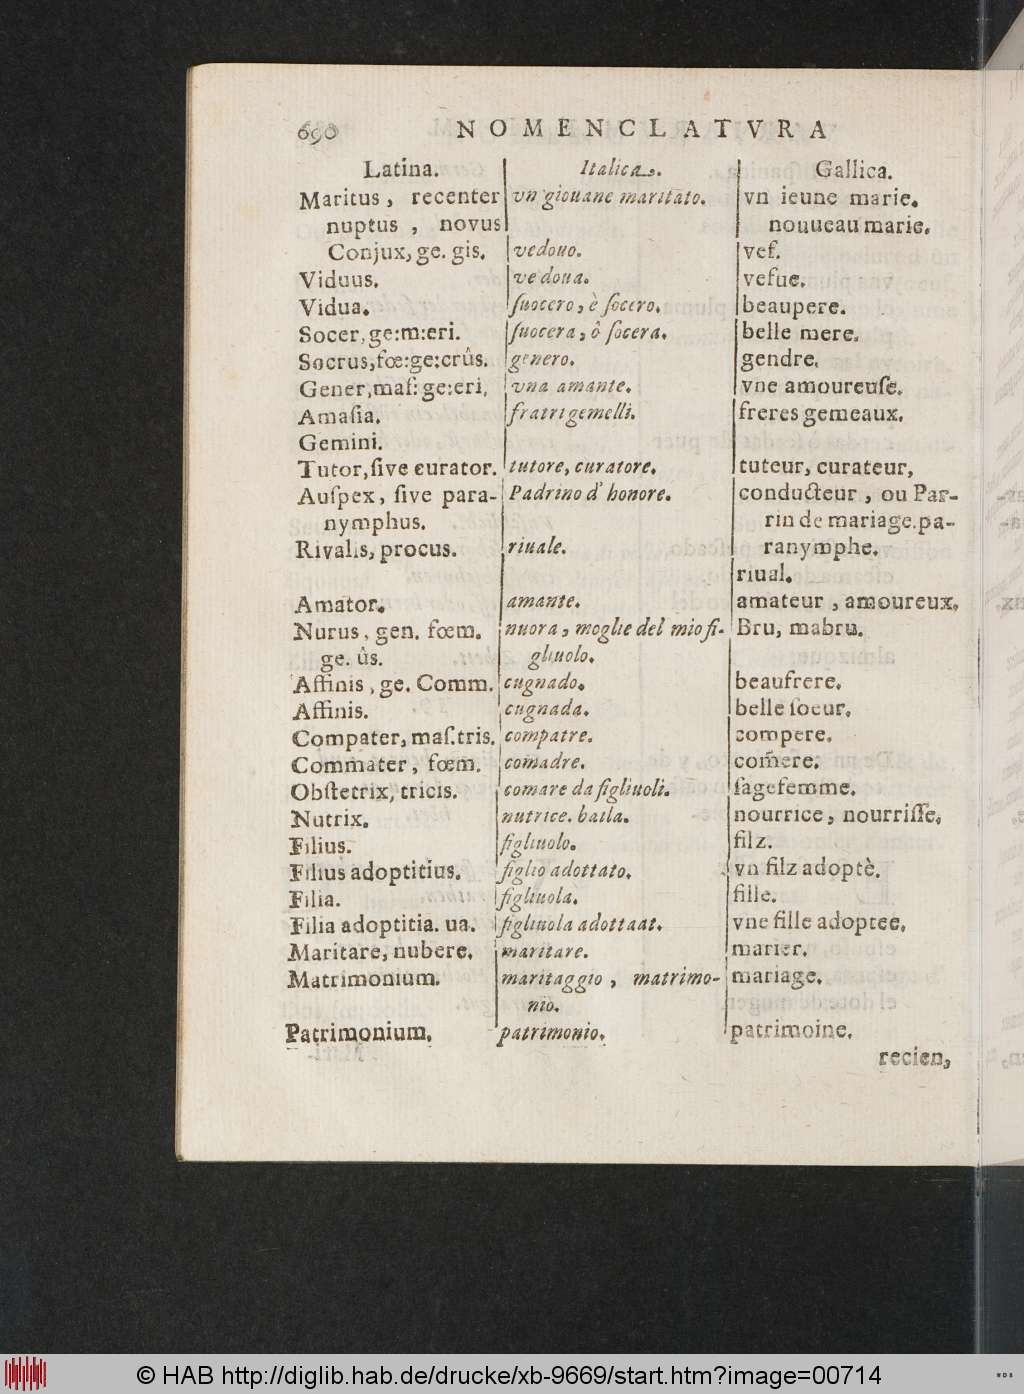 690 NOMENCLATVRA
Latina. Italica. Gallica.
Maritus, recenter vn giouane maritato. vn ieune marie.
nuptus, novus nouueau marie.
Conjux, ge. gis. vedouo. vef.
Viduus. vedoua. vefue.
Vidua. ſuocero, è ſocero. beaupere.
Socer, ge:m:eri. ſuocera, ô ſocera. belle mere.
Socrus, fœ:ge:crûs. genero. gendre.
Gener, maſ: ge:eri, vna amante. vne amoureuſe.
Amaſia. fratri gemelli. freres gemeaux.
Gemini.
Tutor, ſive curator. tutore, curatore. tuteur, curateur,
Auſpex, ſive para- Padrino d' honore. conducteur, ou Par-
nymphus. rin de mariage. pa-
Rivalis, procus. riuale. ranymphe.
riual.
Amator. amante. amateur, amoureux.
Nurus, gen. fœm. nuora, moglie del mio fi- Bru, mabru.
ge. ûs. gliuolo.
Affinis, ge. Comm. cugnado. beaufrere.
Affinis. cugnada. belle ſoeur.
Compater, maſ. tris. compatre. compere.
Commater, fœm. comadre. com̃ere.
Obſtetrix, tricis. comare da figliuoli. ſagefemme.
Nutrix. nutrice. baila. nourrice, nourriſſe,
Filius. figliuolo. filz.
Filius adoptitius. figlio adottato. vn filz adoptè.
Filia. figliuola. fille.
Filia adoptitia. ua. figliuola adottaat. vne fille adoptee.
Maritare, nubere. maritare. marier.
Matrimonium. maritaggio, matrimo- mariage.
nio.
Patrimonium. patrimonio. patrimoine.
recien,
© HAB http://diglib.hab.de/drucke/xb-9669/start.htm?image=00714